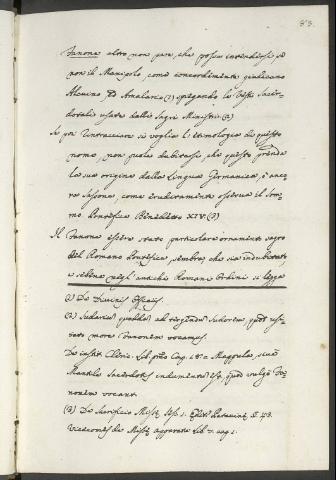 fanone altro non pare, che possa intendersi se
non il Manipolo, come concordemente giudicano
Alcuino, ed Amalario (1) spiegando le Vesti Sacer-
dotali usate dalli Sagri Ministri (2)
Se poi rintracciar si voglia l'etimologia di questo
nome, non puole dubitarsi, che questo prenda
la sua origine dalla Lingua Germanica, è anco-
ra Sassone, come eruditamente osserva il Som-
mo Pontefice Benedetto XIV. (3)
Il Fanone essere stato particolare ornamento sagro
del Romano Pontefice, sembra che sia indubitato
e sebene negl'antichi Romani Ordini si legga
(1) De Divinis Officiis.
(2) Sudarium quoddam ad tergendum Sudorem, quod usi-
tato more Fanonem vocamus.
De instit. Cleric. Lib. primo Cap. 18. Mappula, sive
Mantile Sacerdotis indumentum est, quod vulgo Fa-
nonem vocant.
(3) De Sacrificio Missæ Sess. 1. Edit. Patavinæ §. 43.
Vicecomes de Missæ apparatu Lib. cap. 1.